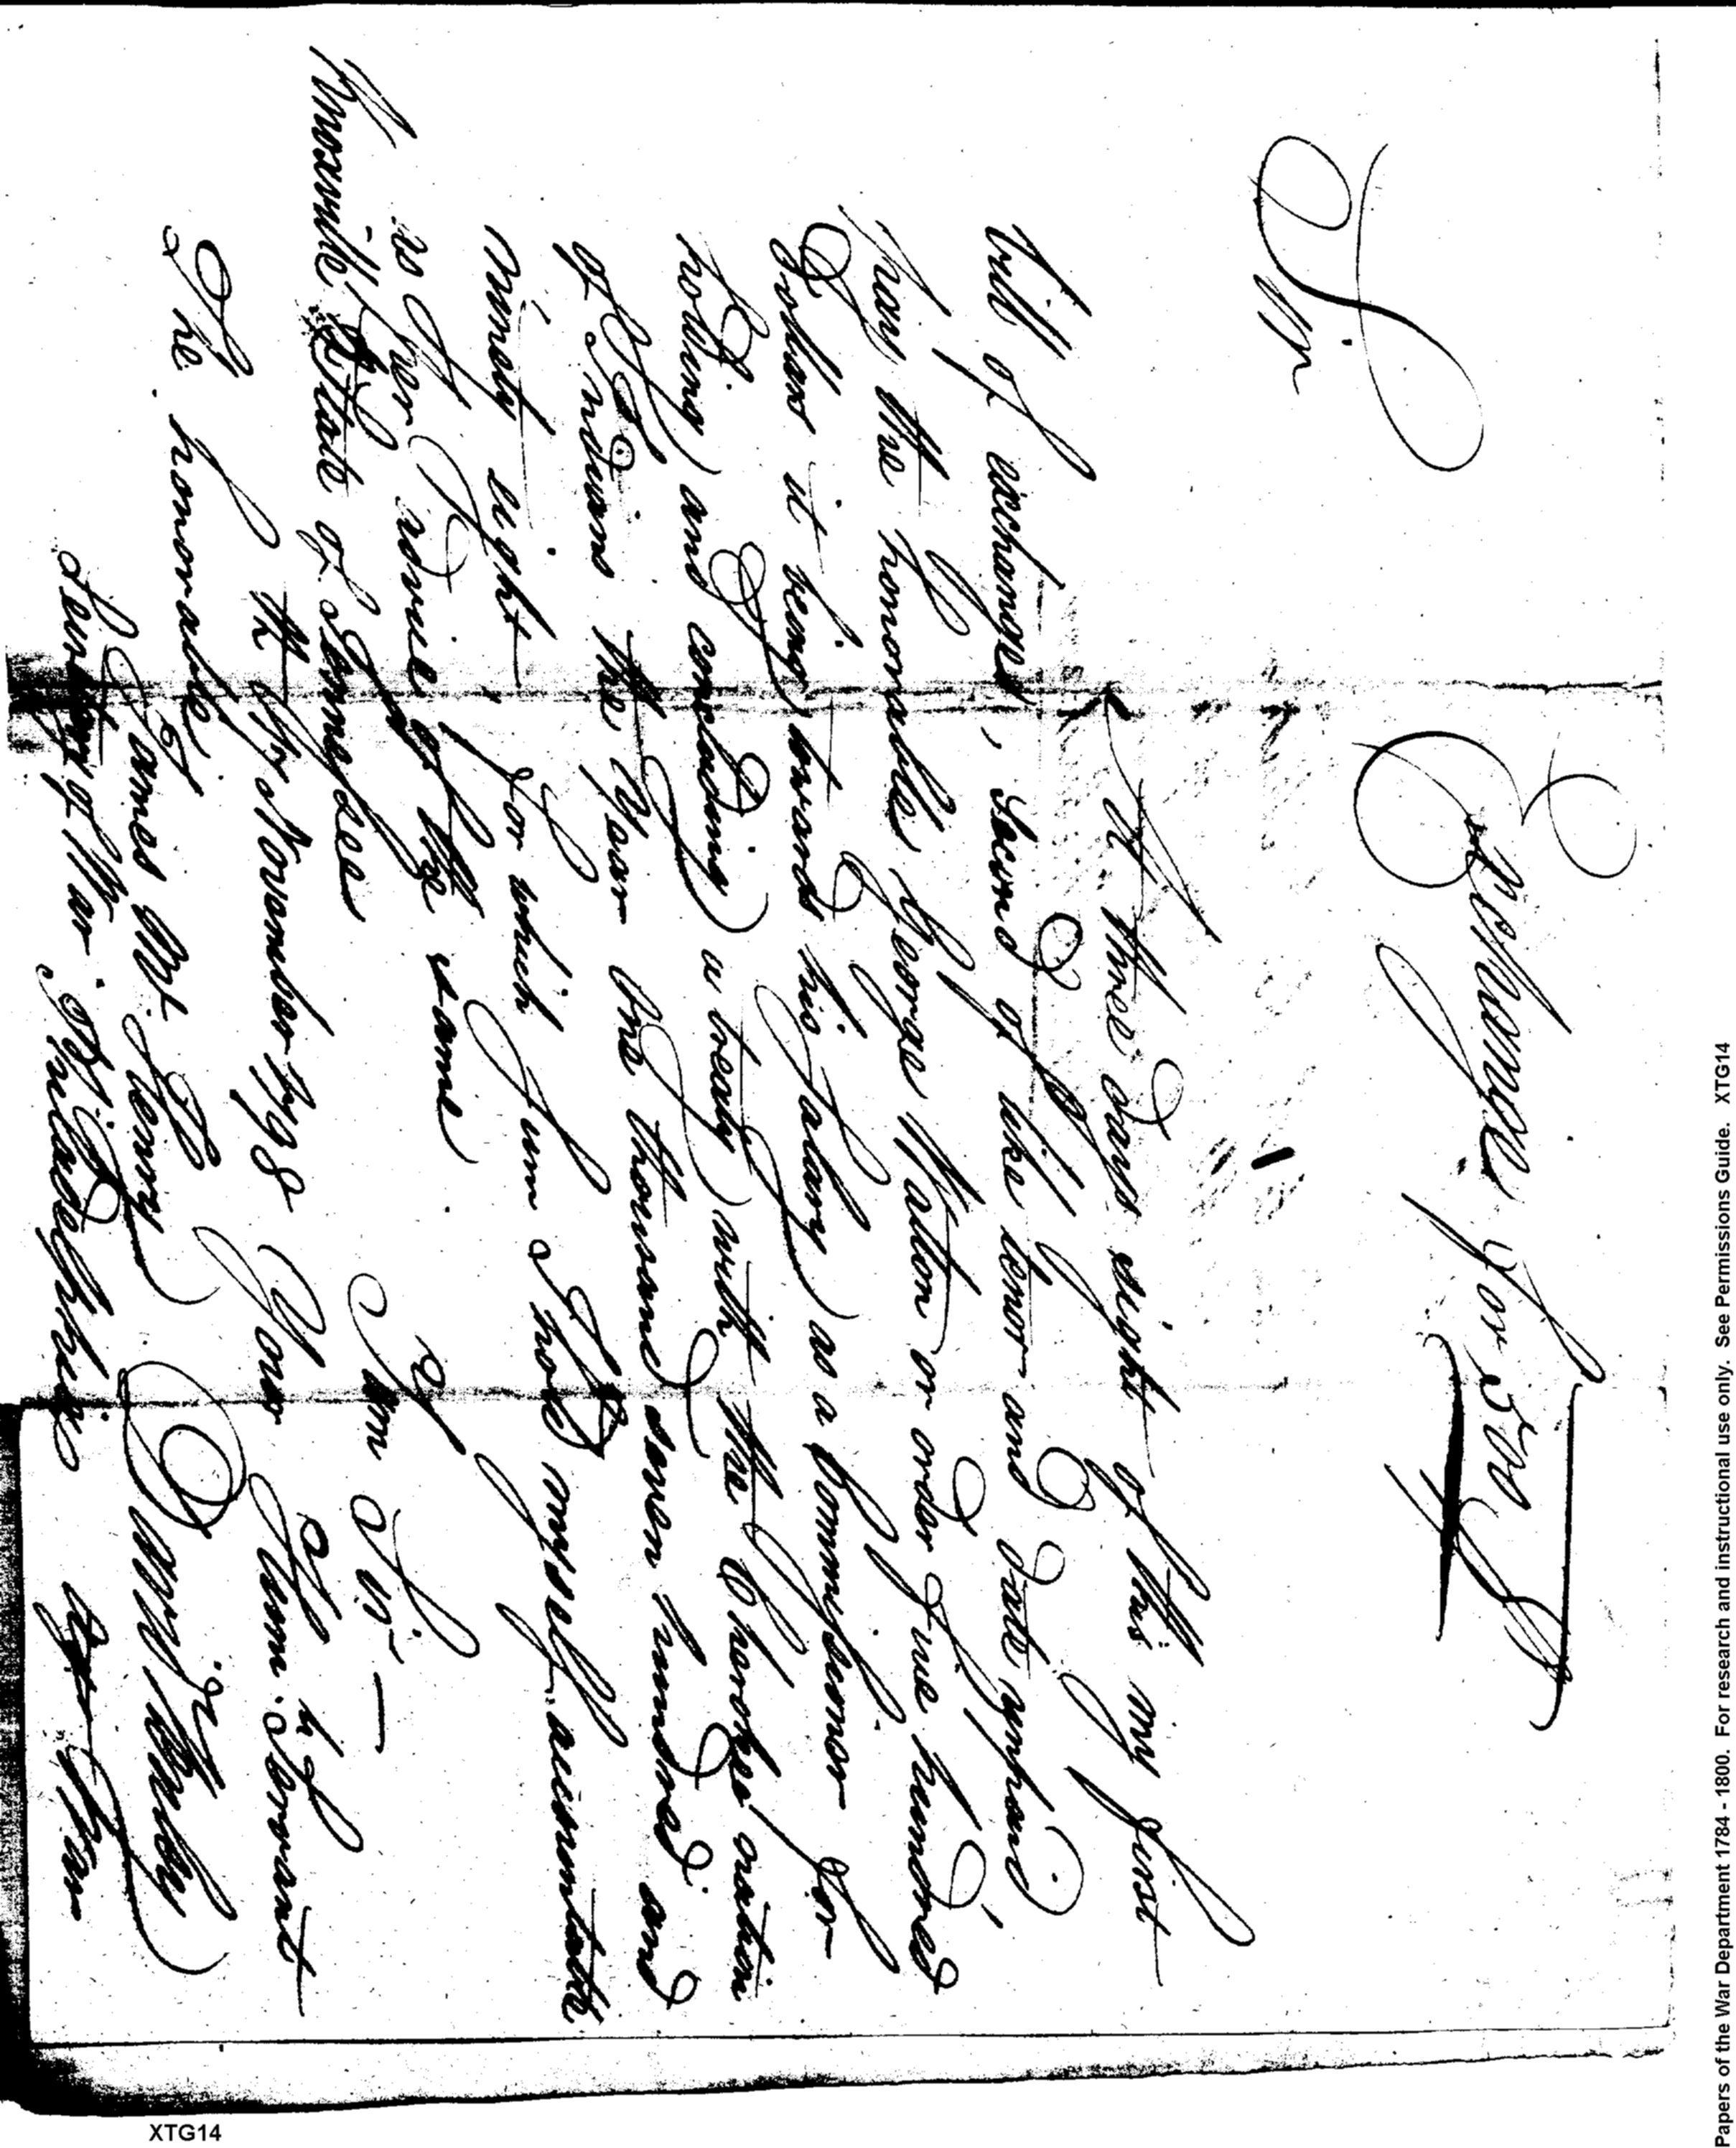 Exchange for 500 $
Sir
At three days sight of this my first
bill of exchange, second of like tenor and date unpaid
pay the honorable George Walton or order five hundred
Dollars it being towards his Salary as a Commissioner for
holding and concluding a treaty with the Cherokee nation
of Indians the Year one thousand seven hundred and
ninety eight — for which Sum I hold myself accountable
as per advice of the same
I am Sir —
Knoxville State of Tennessee
7th November 1798 Your Hum. Servant
The honorable
James McHenry David Henley
Secretary of War. Philadelphia Agt War
Papers of the War Department 1784 - 1800. For research and instructional use only. See Permissions Guide. XTG14
XTG14